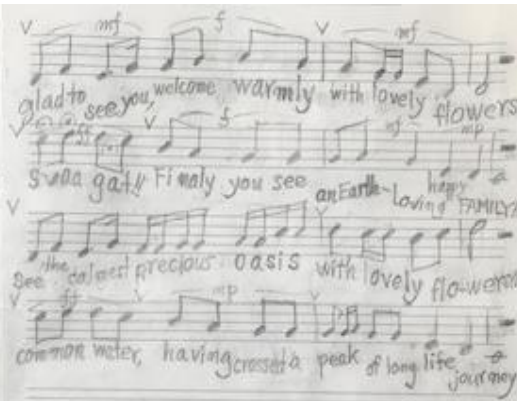 V mf f V mf
glad to see you, welcome warmly with lovely flowers
V ff V f mf mp
gat!! Finaly you see an Earth-Loving happy FAMILY?
V V
See the calmest precious oasis with lovely flo-wered
V ff V mp V
common water, having crossed a peak of long life journey